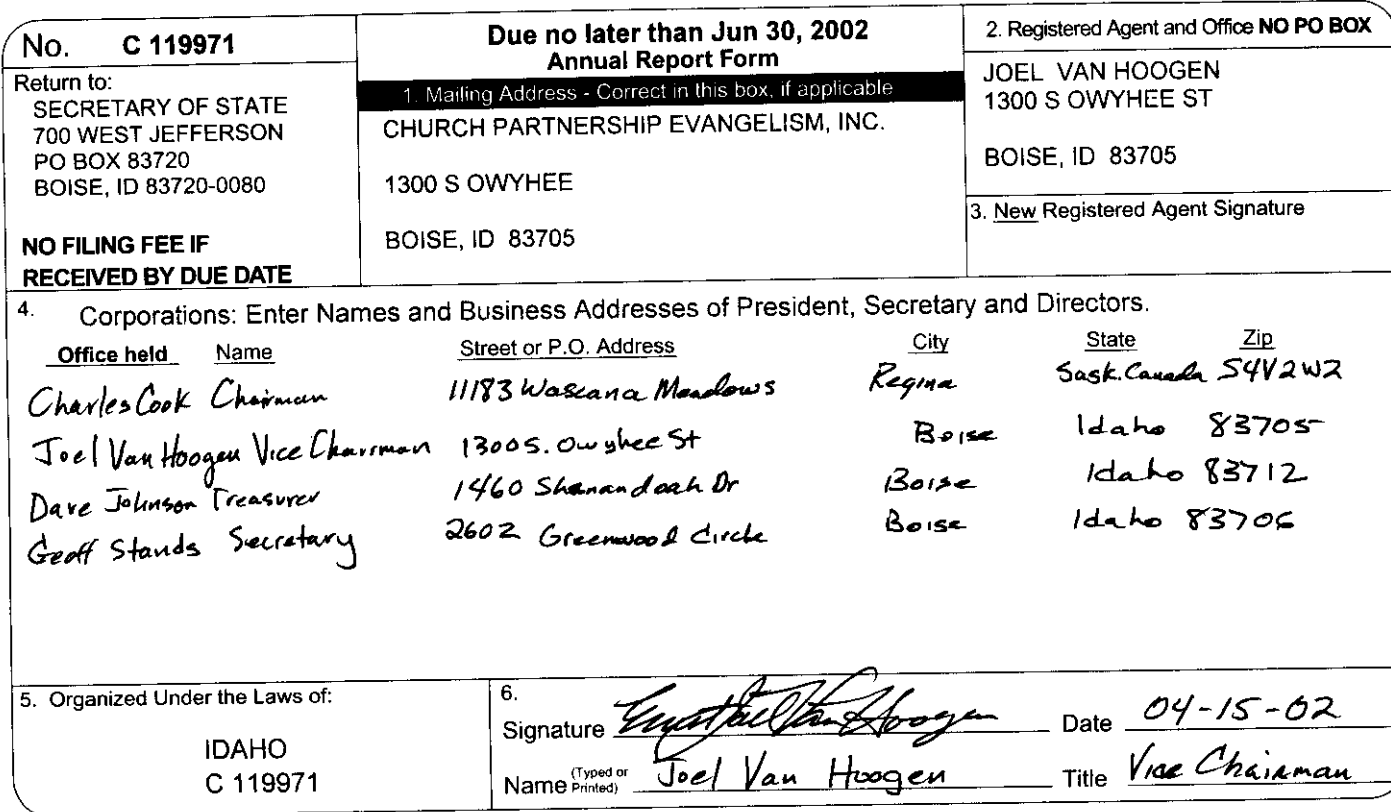 No. C 119971
Return to:
SECRETARY OF STATE
700 WEST JEFFERSON
PO BOX 83720
BOISE, ID 83720-0080
NO FILING FEE IF
RECEIVED BY DUE DATE
Due no later than Jun 30, 2002
Annual Report Form
1. Mailing Address - Correct in this box, if applicable
CHURCH PARTNERSHIP EVANGELISM, INC.
1300 S OWYHEE
BOISE, ID 83705
2. Registered Agent and Office NO PO BOX
JOEL VAN HOOGEN
1300 S OWYHEE ST
BOISE, ID 83705
3. New Registered Agent Signature
4. Corporations: Enter Names and Business Addresses of President, Secretary and Directors.
Office held Name Street or P.O. Address City State Zip
Charles Cook Chairman 11183 Wascana Meadows Regina Sask. Canada S4V2W2
Joel Van Hoogen Vice Chairman 1300 S. Owyhee St Boise Idaho 83705
Dave Johnson Treasurer 1460 Shanandoah Dr Boise Idaho 83712
Geoff Stands Secretary 2602 Greenwood Circle Boise Idaho 83706
5. Organized Under the Laws of:
IDAHO
C 119971
6.
Signature Van Hoogen Date 04-15-02
Name (Typed or Printed) Joel Van Hoogen Title Vice Chairman